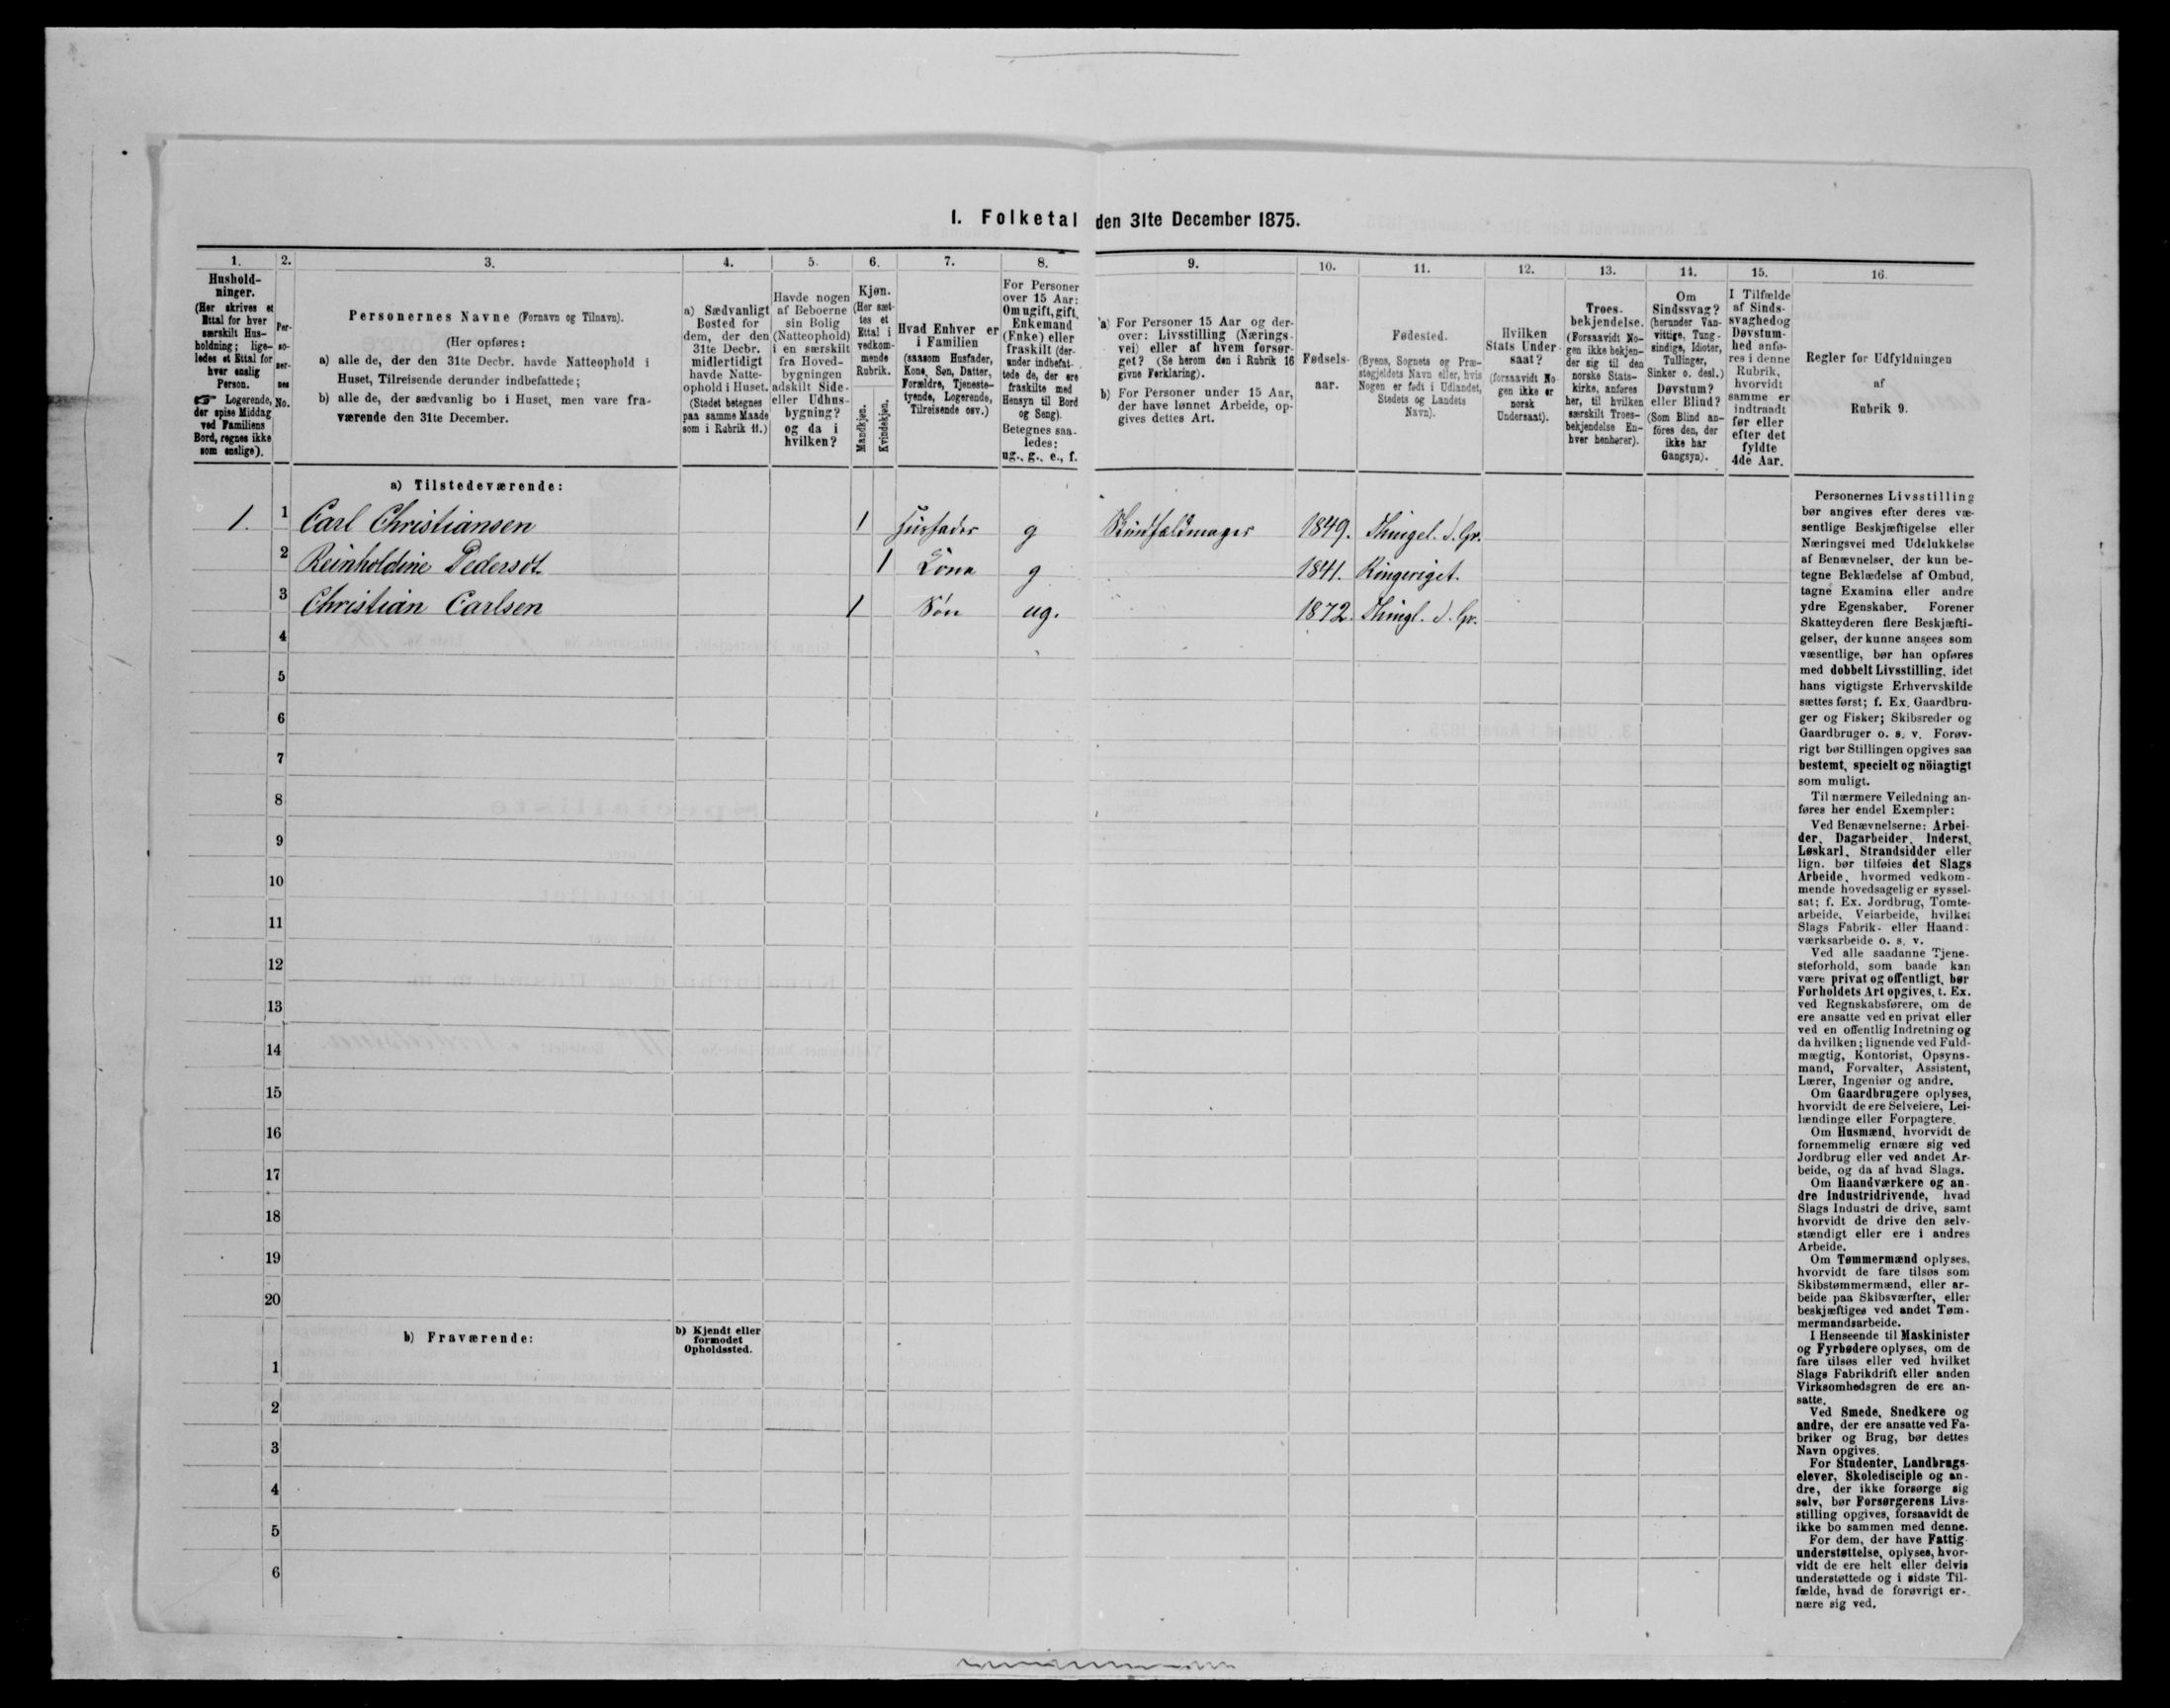 I. Folketal den 31te December 1875.
1.
2.
3.
4.
5.
6.
7.
8.
9.
10.
11.
12.
13.
14.
15.
16.
Hushold-
ninger.
(Her skrives et
Ettal for hver
særskilt Hus-
holdning; lige-
ledes et Ettal for
hver enslig
Person.
☞ Logerende,
der spise Middag
ved Familiens
Bord, regnes ikke
som enslige).
Per-
so-
ner-
nes
No.
Personernes Navne (Fornavn og Tilnavn).
(Her opføres:
a) alle de, der den 31te Decbr. havde Natteophold i
Huset, Tilreisende derunder indbefattede;
b) alle de, der sædvanlig bo i Huset, men vare fra-
værende den 31te December.
a) Sædvanligt
Bosted for
dem, der den
31te Decbr.
midlertidigt
havde Natte-
ophold i Huset.
(Stedet betegnes
paa samme Maade
som i Rubrik 11.)
Havde nogen
af Beboerne
sin Bolig
(Natteophold)
i en særskilt
fra Hoved-
bygningen
adskilt Side-
eller Udhus-
bygning?
og da i
hvilken?
Kjøn.
(Her sæt-
tes et
Ettal i
vedkom-
mende
Rubrik.
Mandkjøn.
Kvindekjøn.
Hvad Enhver er
i Familien
(saasom Husfader,
Kone, Søn, Datter,
Forældre, Tjeneste-
tyende, Logerende,
Tilreisende osv.)
For Personer
over 15 Aar:
Om ugift, gift,
Enkemand
(Enke) eller
fraskilt (der-
under indbefat-
tede de, der ere
fraskilte med
Hensyn til Bord
og Seng).
Betegnes saa-
ledes:
ug., g., e., f.
a) For Personer 15 Aar og der-
over: Livsstilling (Nærings-
vei) eller af hvem forsør-
get? (Se herom den i Rubrik 16
givne Forklaring).
b) For Personer under 15 Aar,
der have lønnet Arbeide, op-
gives dettes Art.
Fødsels-
aar.
Fødested.
(Byens, Sognets og Præ-
stegjeldets Navn eller, hvis
Nogen er født i Udlandet,
Stedets og Landets
Navn).
Hvilken
Stats Under-
saat?
(forsaavidt No-
gen ikke er
norsk
Undersaat).
Troes-
bekjendelse.
(Forsaavidt No-
gen ikke bekjen-
der sig til den
norske Stats-
kirke, anføres
her, til hvilken
særskilt Troes-
bekjendelse En-
hver henhører).
Om
Sindssvag?
(herunder Van-
vittige, Tung-
sindige, Idioter,
Tullinger,
Sinker o. desl.)
Døvstum?
eller Blind?
(Som Blind an-
føres den, der
ikke har
Gangsyn).
I Tilfælde
af Sinds-
svaghed og
Døvstum-
hed anfø-
res i denne
Rubrik,
hvorvidt
samme er
indtraadt
før eller
efter det
fyldte
4de Aar.
Regler for Udfyldningen
af
Rubrik 9.
a) Tilstedeværende:
1. 1 Carl Christiansen 1 Husfader g 1849.
2 Reinholdine Pedersdt. 1 Kona g 1841. Ringeriget.
3 Christian Carlsen 1 Søn ug. 1872.
4
5
6
7
8
9
10
11
12
13
14
15
16
17
18
19
20
b) Fraværende:
b) Kjendt eller
formodet
Opholdssted.
1
2
3
4
5
6
Personernes Livsstilling
bør angives efter deres væ-
sentlige Beskjæftigelse eller
Næringsvei med Udelukkelse
af Benævnelser, der kun be-
tegne Beklædelse af Ombud,
tagne Examina eller andre
ydre Egenskaber. Forener
Skatteyderen flere Beskjæfti-
gelser, der kunne ansees som
væsentlige, bør han opføres
med dobbelt Livsstilling, idet
hans vigtigste Erhvervskilde
sættes først; f. Ex. Gaardbru-
ger og Fisker; Skibsreder og
Gaardbruger o. s. v. Forøv-
rigt bør Stillingen opgives saa
bestemt, specielt og nöiagtigt
som muligt.
Til nærmere Veiledning an-
føres her endel Exempler:
Ved Benævnelserne: Arbei-
der, Dagarbeider, Inderst,
Løskarl, Strandsidder eller
lign. bør tilføies det Slags
Arbeide, hvormed vedkom-
mende hovedsagelig er syssel-
sat; f. Ex. Jordbrug, Tomte-
arbeide, Veiarbeide, hvilket
Slags Fabrik- eller Haand-
værksarbeide o. s. v.
Ved alle saadanne Tjene-
steforhold, som baade kan
være privat og offentligt, bør
Forholdets Art opgives, t. Ex.
ved Regnskabsførere, om de
ere ansatte ved en privat eller
ved en offentlig Indretning og
da hvilken; lignende ved Fuld-
mægtig, Kontorist, Opsyns-
mand, Forvalter, Assistent,
Lærer, Ingeniør og andre.
Om Gaardbrugere oplyses,
hvorvidt de ere Selveiere, Lei-
lændinge eller Forpagtere.
Om Husmænd, hvorvidt de
fornemmelig ernære sig ved
Jordbrug eller ved andet Ar-
beide, og da af hvad Slags.
Om Haandværkere og an-
dre Industridrivende, hvad
Slags Industri de drive, samt
hvorvidt de drive den selv-
stændigt eller ere i andres
Arbeide.
Om Tømmermænd oplyses,
hvorvidt de fare tilsøs som
Skibstømmermænd, eller ar-
beide paa Skibsværfter, eller
beskjæftiges ved andet Tøm-
mermandsarbeide.
I Henseende til Maskinister
og Fyrbødere oplyses, om de
fare tilsøs eller ved hvilket
Slags Fabrikdrift eller anden
Virksomhedsgren de ere an-
satte.
Ved Smede, Snedkere og
andre, der ere ansatte ved Fa-
briker og Brug, bør dettes
Navn opgives.
For Studenter, Landbrugs-
elever, Skoledisciple og an-
dre, der ikke forsørge sig
selv, bør Forsørgerens Livs-
stilling opgives, forsaavidt de
ikke bo sammen med denne.
For dem, der have Fattig-
understøttelse, oplyses, hvor-
vidt de ere helt eller delvis
understøttede og i sidste Til-
fælde, hvad de forøvrigt er-
nære sig ved.